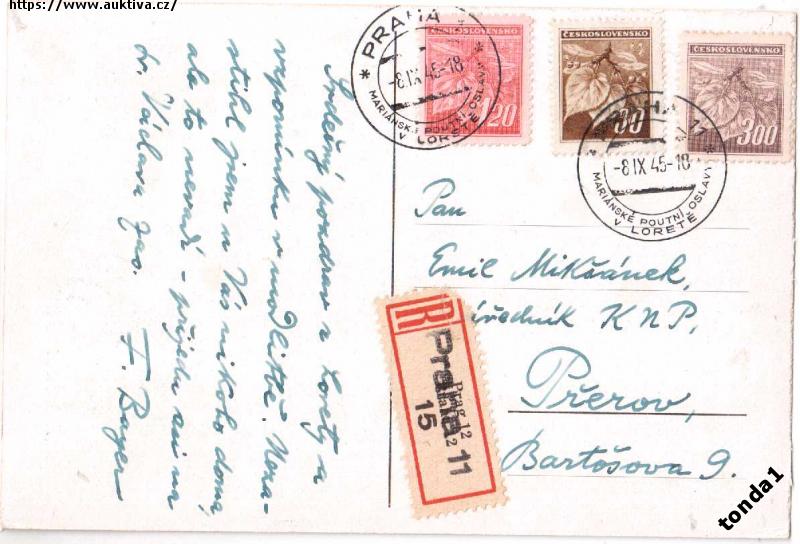 https://www.auktiva.cz/
Srdečný pozdrav z Lorety a
vzpomínku v modlitbě. Neza-
stihl jsem u Vás nikoho doma,
ale to nevadí - přijedu zas na
sv. Václava
F. Bayer
PRAHA
-8.IX.45-18
MARIÁNSKÉ POUTNÍ OSLAVY
V LORETĚ
ČESKOSLOVENSKO
20
ČESKOSLOVENSKO
80
ČESKOSLOVENSKO
300
PRAHA 17
-8.IX.45-18
MARIÁNSKÉ POUTNÍ OSLAVY
V LORETĚ
Pan
Emil Mikšánek,
úředník KNP,
Přerov,
Bartošova 9.
R
Prag 12
Praha 11
15
tonda1